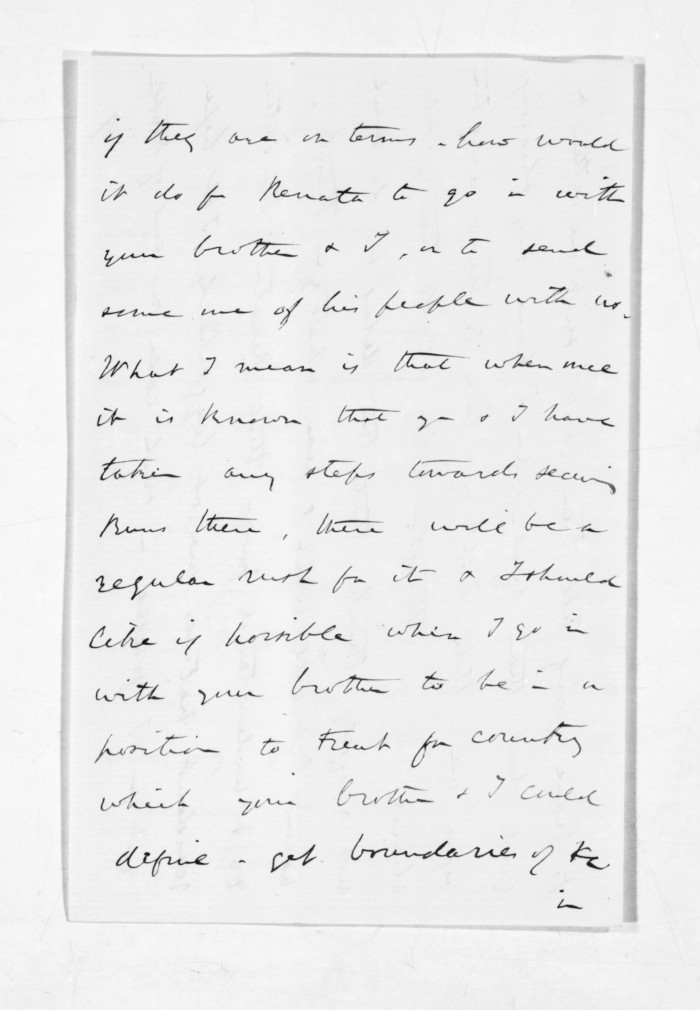 if they are on terms - how would
it do for Renata to go in with
your brother & I, or to send
some one of his people with us.
What I mean is that when once
it is known that you & I have
taken any steps towards securing
Runs there, there will be a
regular rush for it & I should
like if possible when I go in
with your brother to be in a
position to treat for country
which your brother & I could
define - get boundaries of &c
in